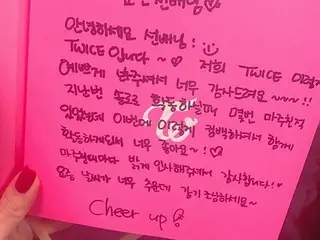 선배님♡
안녕하세요 선배님! :)
TWICE입니다~♡ 저희 TWICE 이렇게
예쁘게 봐주셔서 너무 감사드려요~~~!!
지난번 솔로 활동하실때 몇번 마주친적
있었는데 이번에 이렇게 컴백하셔서 함께
활동하게되서 너무 좋아요~!
마주칠때마다 밝게 인사해주셔서 감사합니다!
요즘 날씨가 너무 추운데 감기 조심하세요~
Cheer up!